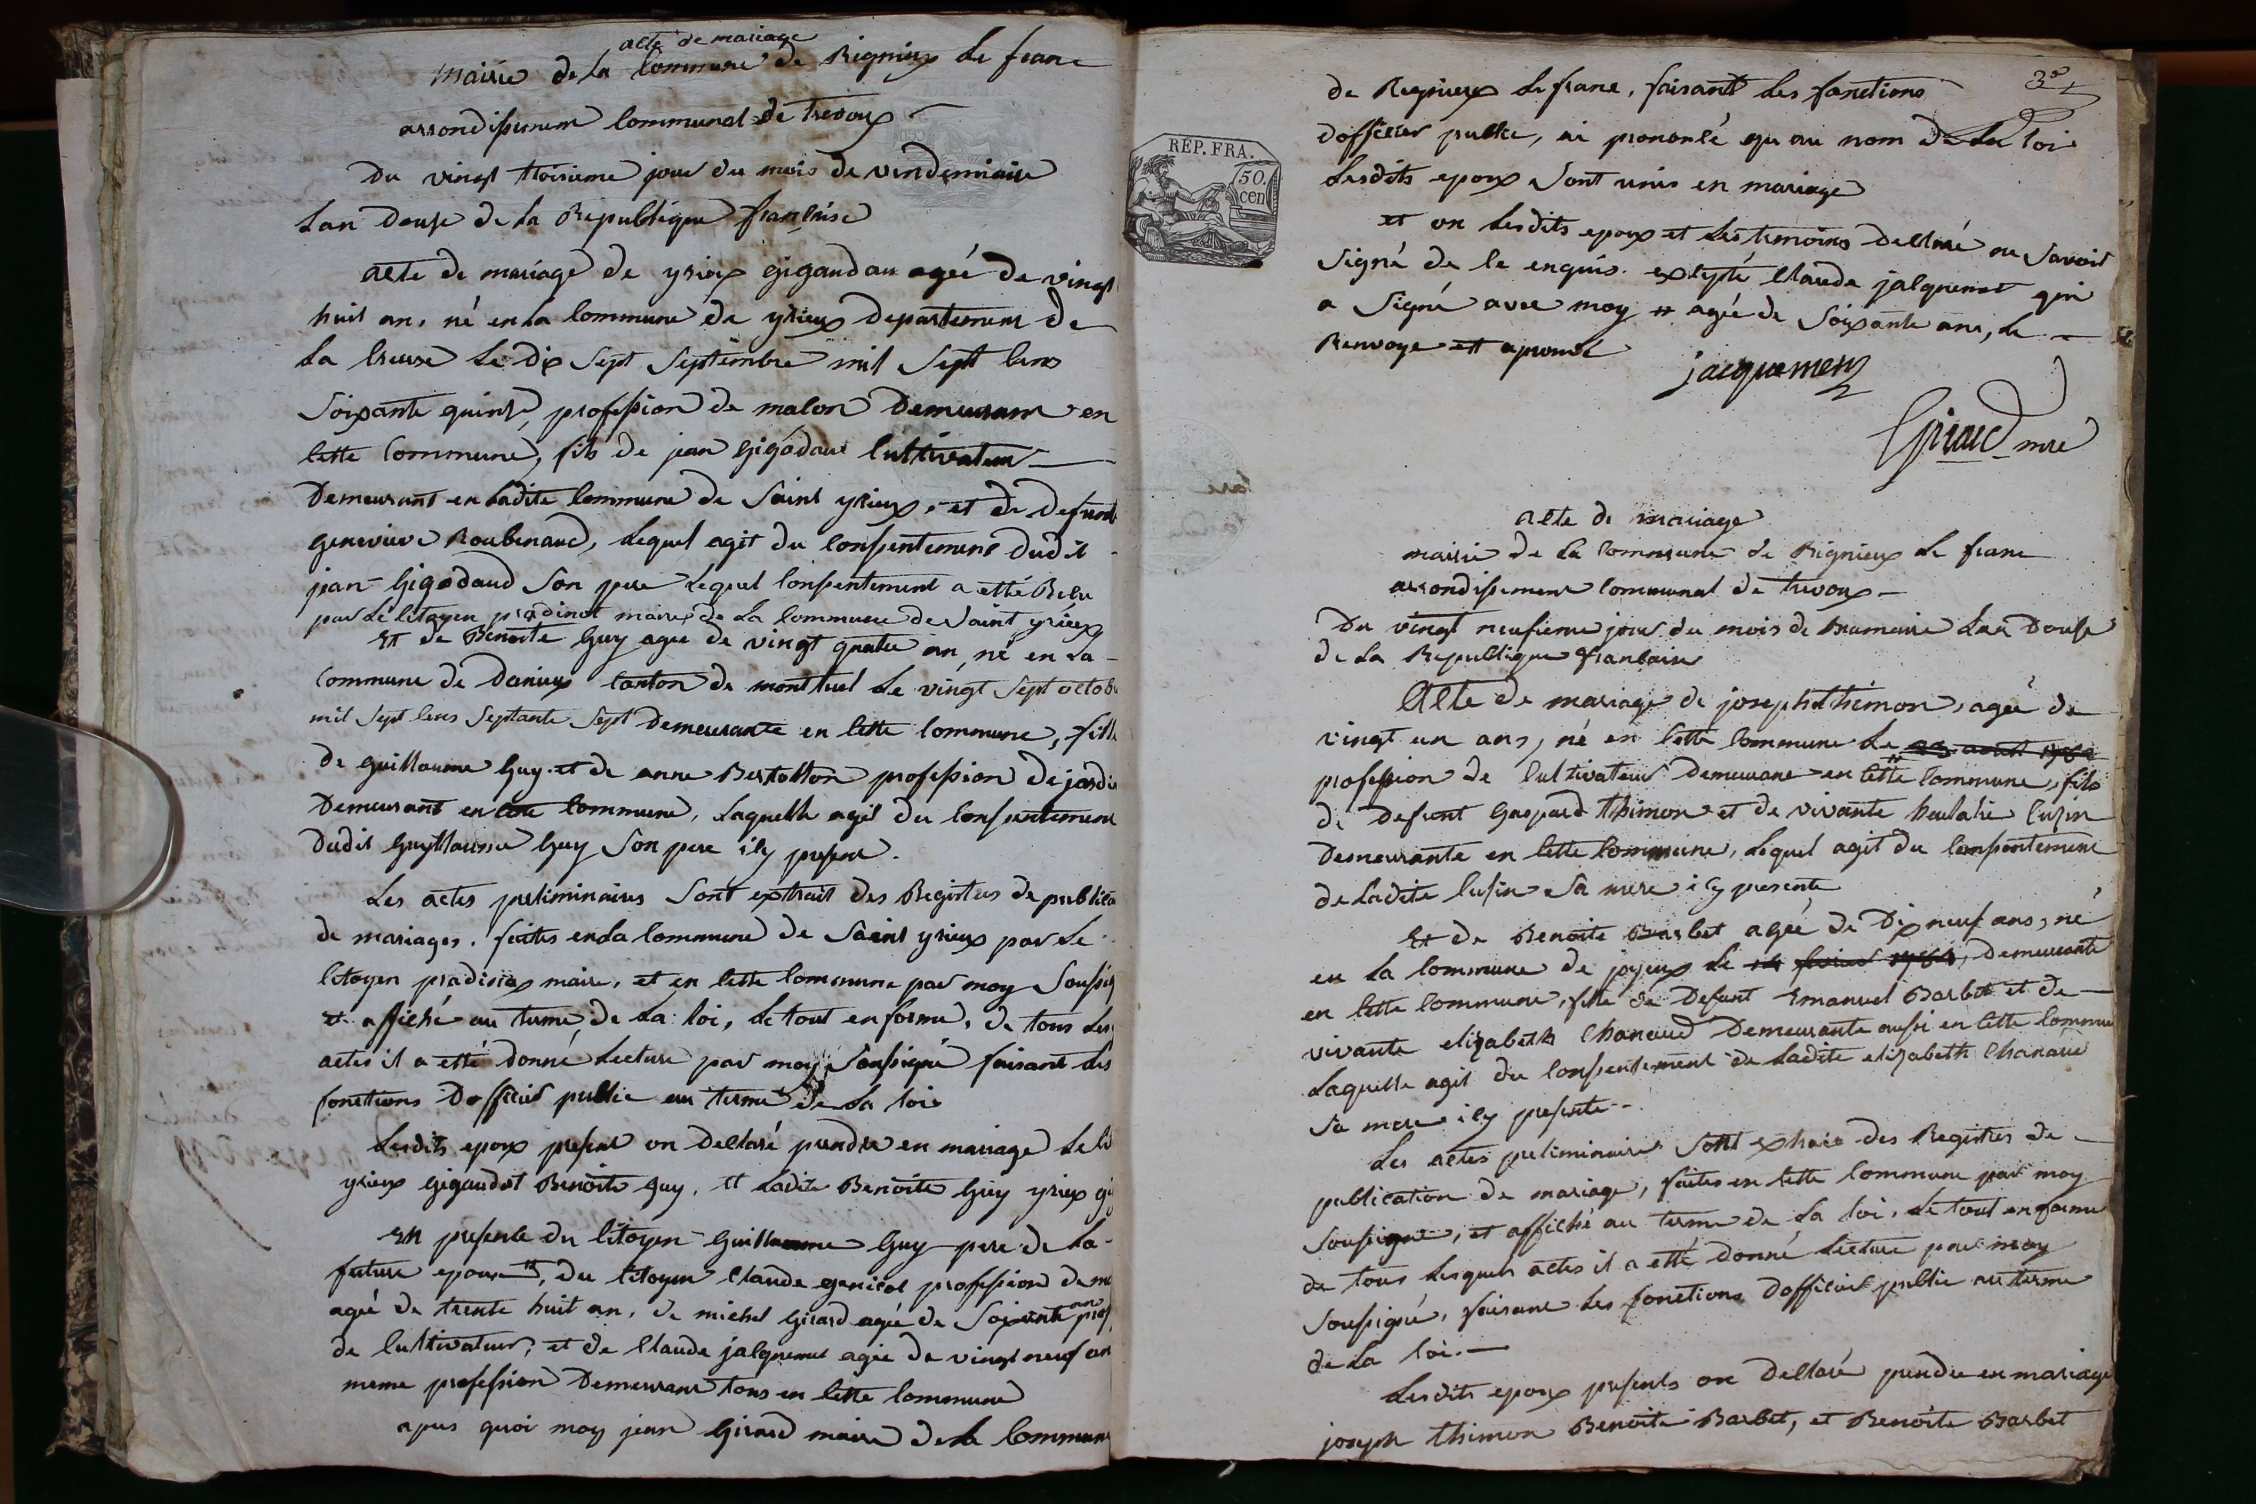 acte de mariage
mairie de la Commune de Rignieux le franc
arrondissement Communal de trevoux
Du vingt troisieme jour du mois de vendemiaire
Lan Douse de la Republique française
acte de mariage de yrieux gigandau agée de vingt
huit an, né en la Commune de yrieux departement de
la Creuse Le dix Sept Septembre mil Sept Cens
Soixante quinse, profession de malon Demeurant en
Cette Commune, fils de jean gigodau Cultivateur
Demeurant en Ladite Commune de Saint yrieux, et de Defunte
genevieve Roubenaud, Lequel agit du Consentement dudit
jean Gigodaud Son pere Lequel Consentement a etté Relu
par Le Citoyen pradinot maire de la Commune de Saint yrieux
Et de Benoite Guy agee de vingt quatre an, né en La
Commune de Danieux Canton de montluel Le vingt Sept octob
mil Sept Cens Septante Sept Demeurante en Cette Commune, fille
de guillaume Guy et de anne Bertollon profession de jardi
Demeurant en Commune, Laquelle agit du Consentement
Dudit Guyllaume Guy Son pere icy present.
Les actes preliminaires Sont extrait des Registres de publica
de mariages, faites en La Commune de Saint yrieux par Le
Citoyen maire, et en Cette Commune par moy Soussig
et affiché au terme de La loi, Le tout en forme, de tous Les
actes il a etté donné Lecture par moy Soussigné faisant Les
fonctions Dofficier public au terme de La loi
Lesdits epoux present on Declaré prendre en mariage Le di
yrieux gigaudot Benoite guy, et Ladite Benoite Guy yrieux gi
En presence du Citoyen Guillaume Guy pere de La
future epouse, du Citoyen Claude genicot profession de ma
agé de trente huit an, de michel Girard agée de Soixante an prof
de Cultivateur, et de Claude jalquemet agée de vingt neuf an
meme profession Demeurant tous en Cette Commune
apres quoi moy jean Girard maire de La Commune
3e
de Regnieux Le franc, faisant Les fonctions
dofficier public, ai prononcé qu au nom de La loi
Lesdits epoux Sont unis en mariage
et on Lesdits epoux et Les temoins Declaré ne Savoir
Signé de Ce enquis. excepté Claude jalquemet qui
a Signé avec moy # agée de Soixante ans, Le
Renvoye est aprouvé
jacquemet
Girard mre
RÉP. FRA.
50. cen
acte de mariage
mairie de La Commune de Rignieux Le franc
arrondissement Communal de trevoux
Du vingt neufieme jour du mois de Brumaire Lan Douse
de La Republique francaise
acte de mariage de joseph thimon, agée de
vingt un ans, né en Cette Commune Le
profession de Cultivateur Demeurant en Cette Commune, fils
de defunt Gaspard thimon et de vivante Cusin
Demeurante en Cette Commune, Lequel agit du Consentement
de Ladite Cusin Sa mere icy presente
Et de Benoite Barbet agée de Dix neuf ans, né
en La Commune de joyeux Le 14 fevrier 1784, Demeurante
en Cette Commune, fille de Defunt Emanuel Barbet et de
vivante elizabeth Chanaud Demeurante aussi en Cette Commu
Laquelle agit du Consentement de Ladite elizabeth Chanaud
Sa mere icy presente
Les actes preliminaires Sont extrais des Registres de
publication de mariage, faites en Cette Commune par moy
Soussigné, et affiché au terme de La loi, Le tout en forme
de tous Lesquels actes il a etté donné Lecture par moy
Soussigné, faisant Les fonctions Dofficier public au terme
de La loi.
Lesdits epoux presents on Declaré prendre en mariage
joseph thimon Benoite Barbet, et Benoite Barbet